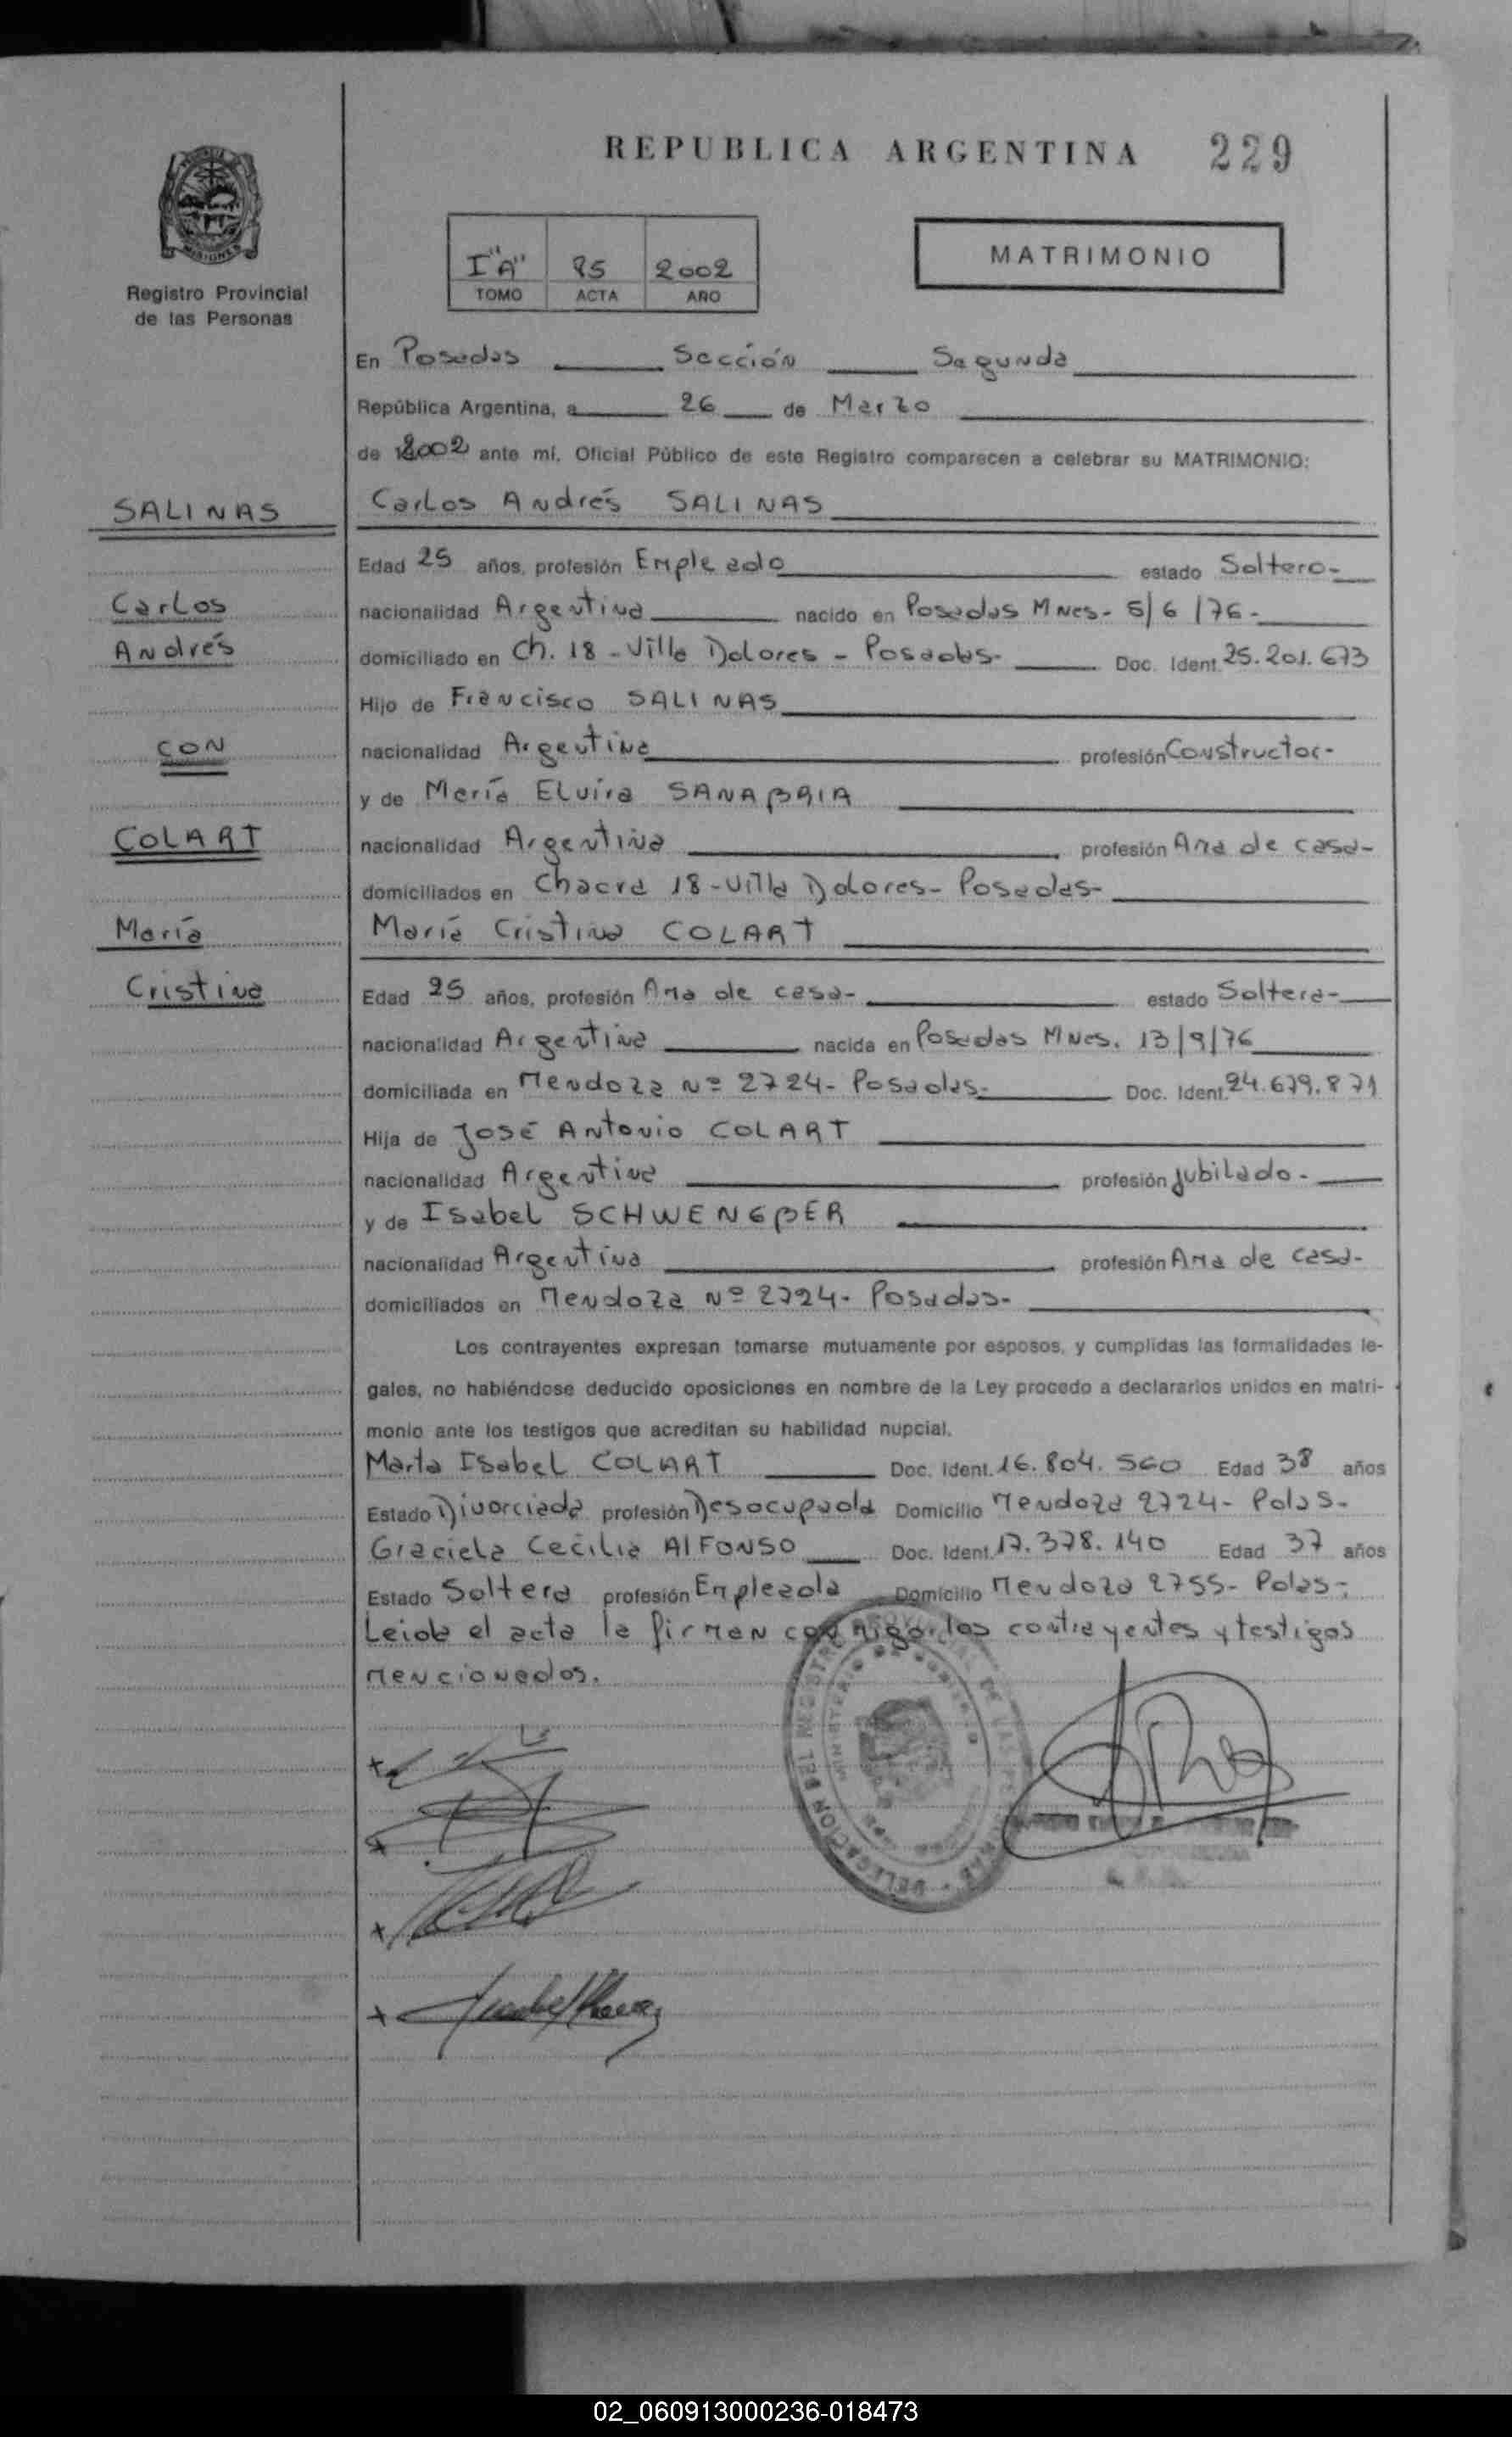 REPUBLICA ARGENTINA 229
Registro Provincial
de las Personas
I "A" 85 2002
TOMO ACTA AÑO
MATRIMONIO
En Posadas Sección Segunda
República Argentina, a 26 de Marzo
de 2002 ante mí, Oficial Público de este Registro comparecen a celebrar su MATRIMONIO:
SALINAS
Carlos Andrés SALINAS
Edad 25 años, profesión Empleado estado Soltero-
Carlos
nacionalidad Argentina nacido en Posadas Mnes- 5/6/76-
Andrés
domiciliado en Ch. 18 - Villa Dolores - Posadas- Doc. Ident. 25.201.673
Hijo de Francisco SALINAS
CON
nacionalidad Argentina profesión Constructor-
y de María Elvira SANABRIA
COLART
nacionalidad Argentina profesión Ama de casa-
domiciliados en Chacra 18-Villa Dolores- Posadas-
María
María Cristina COLART
Cristina
Edad 25 años, profesión Ama de casa- estado Soltera-
nacionalidad Argentina nacida en Posadas Mnes. 13/9/76
domiciliada en Mendoza Nº 2724- Posadas- Doc. Ident. 24.679.871
Hija de José Antonio COLART
nacionalidad Argentina profesión Jubilado-
y de Isabel SCHWENGBER
nacionalidad Argentina profesión Ama de casa-
domiciliados en Mendoza Nº 2724- Posadas-
Los contrayentes expresan tomarse mutuamente por esposos, y cumplidas las formalidades le-
gales, no habiéndose deducido oposiciones en nombre de la Ley procedo a declararlos unidos en matri-
monio ante los testigos que acreditan su habilidad nupcial.
Marta Isabel COLART Doc. Ident. 16.804.560 Edad 38 años
Estado Divorciada profesión Desocupada Domicilio Mendoza 2724- Pdas-
Graciela Cecilia AlFONSO Doc. Ident. 17.378.140 Edad 37 años
Estado Soltera profesión Empleada Domicilio Mendoza 2755- Pdas-
Leida el acta la firman conmigo los contrayentes y testigos
mencionados.
02_060913000236-018473